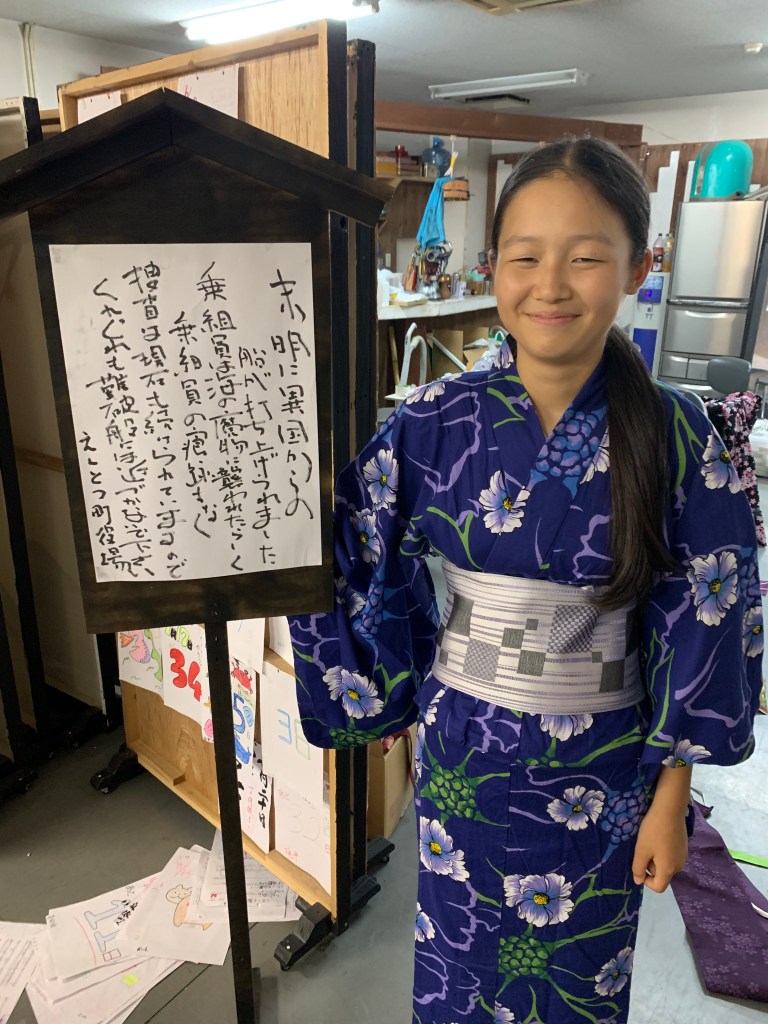 未明に異国からの
船が打ち上げられました
乗組員は海の魔物に襲われたらしく
乗組員の痕跡もなく
捜査は現在も続けられていますので
くれぐれも難破船には近づかないで下さい
えんとつ町役場
34